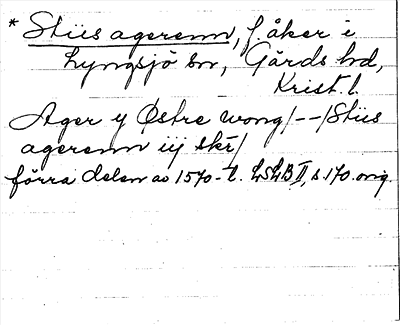 * Stiis agerenn, f. åker i
Lyngsjö sn, Gärds hd,
Krist. l.
Ager y Østre wong/--/Stiis
agerenn iij skr/
förra delen av 1570-t. LSLB II, s. 170. orig.